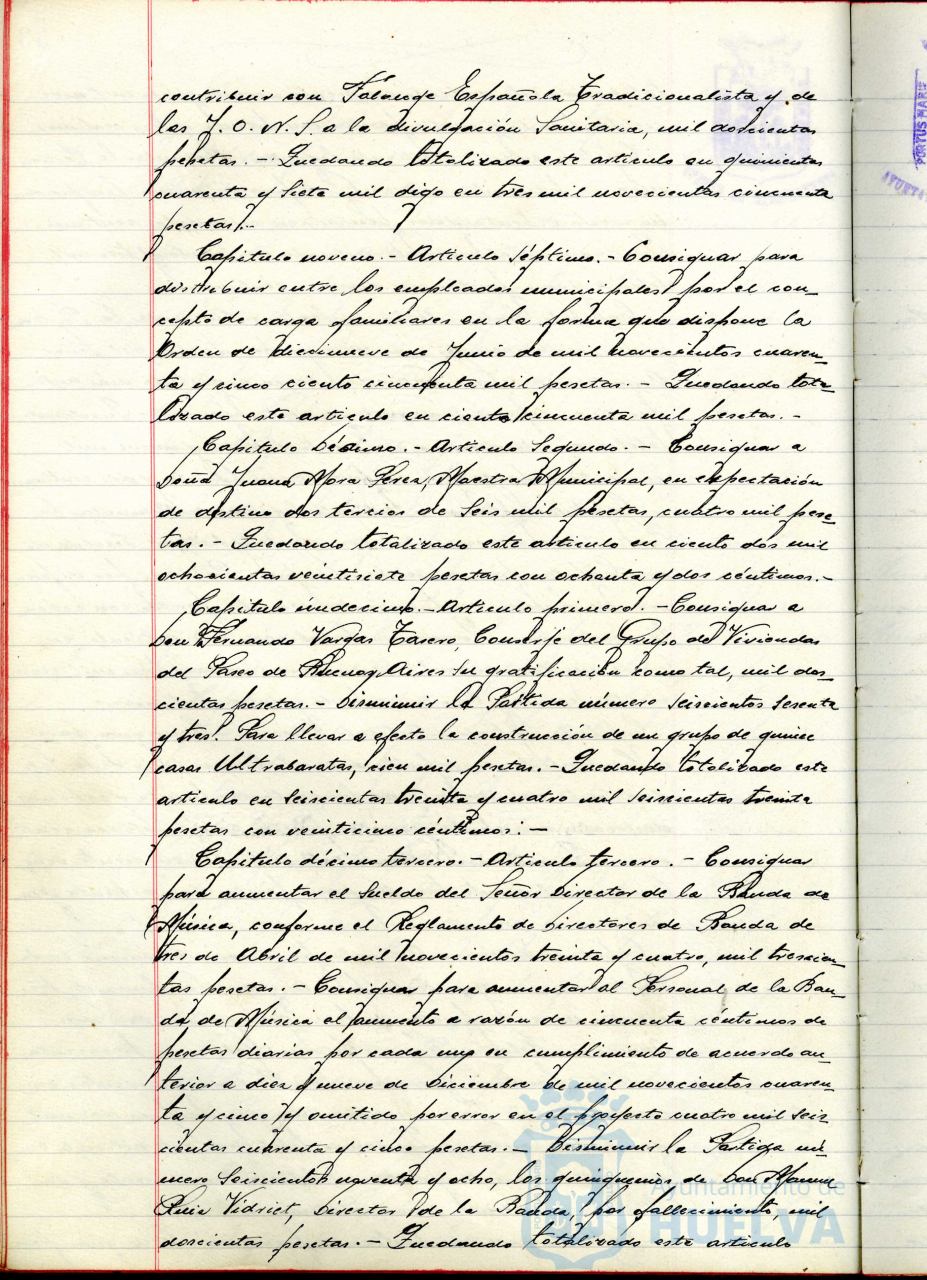 contribuir con Falange Española Tradicionalista y de
las J. O. N. S. a la divulgación Sanitaria, mil doscientas
pesetas. - Quedando totalizado este artículo en quinientas
cuarenta y siete mil digo en tres mil novecientas cincuenta
pesetas.-
Capitulo noveno. - Articulo séptimo. - Consignar para
distribuir entre los empleados municipales por el con-
cepto de carga familiares en la forma que dispone la
Orden de diecinueve de Junio de mil novecientos cuaren-
ta y cinco ciento cincuenta mil pesetas. - Quedando tota-
lizado este articulo en ciento cincuenta mil pesetas. -
Capitulo Décimo. - Articulo Segundo. - Consignar a
Doña Juana Mora Perez, Maestra Municipal, en expectación
de destino dos tercios de Seis mil pesetas, cuatro mil pese-
tas. - Quedando totalizado este articulo en ciento dos mil
ochocientas veintisiete pesetas con ochenta y dos céntimos. -
Capitulo úndecimo. - Articulo primero. - Consignar a
Don Fernando Vargas Tasero, Conserje del Grupo de Viviendas
del Paseo de Buenos Aires su gratificación como tal, mil dos-
cientas pesetas. - Disminuir la Partida número seiscientos sesenta
y tres. Para llevar a efecto la construcción de un grupo de quince
casas Ultrabaratas, cien mil pesetas. - Quedando totalizado este
articulo en seiscientas treinta y cuatro mil seiscientas treinta
pesetas con veinticinco céntimos. -
Capitulo décimo tercero. - Articulo tercero. - Consignar
para aumentar el sueldo del Señor Director de la Banda de
Música, conforme el Reglamento de Directores de Banda de
tres de Abril de mil novecientos treinta y cuatro, mil trescien-
tas pesetas. - Consignar para aumentar al Personal de la Ban-
da de Música el aumento a razón de cincuenta céntimos de
pesetas diarias por cada uno en cumplimiento de acuerdo an-
terior a diez y nueve de Diciembre de mil novecientos cuaren-
ta y cinco y omitido por error en el proyecto cuatro mil seis-
cientas cuarenta y cinco pesetas. - Disminuir la Partida nú-
mero Seiscientos noventa y ocho, los quinquenios de Don Manuel
Ruiz Vidriet, Director de la Banda, por fallecimiento, mil
doscientas pesetas. - Quedando totalizado este articulo
Ayuntamiento de
HUELVA